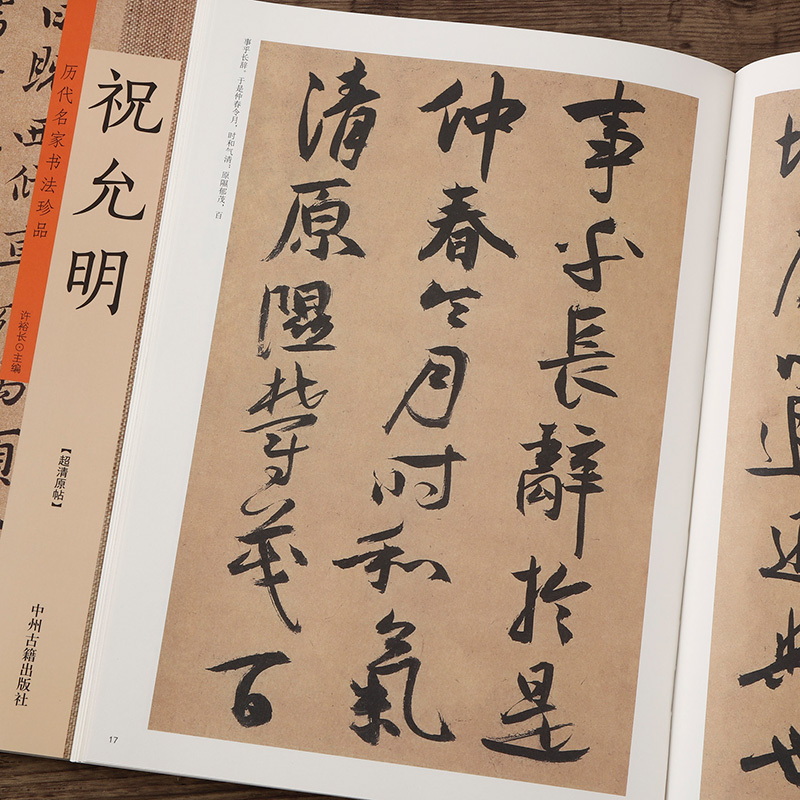 历代名家书法珍品
祝允明
许裕长⊙主编
【超清原帖】
中州古籍出版社
事乎长辞。于是仲春令月，时和气清；原隰郁茂，百
事乎長辭於是
仲春令月時和氣
清原隰鬱茂百
17